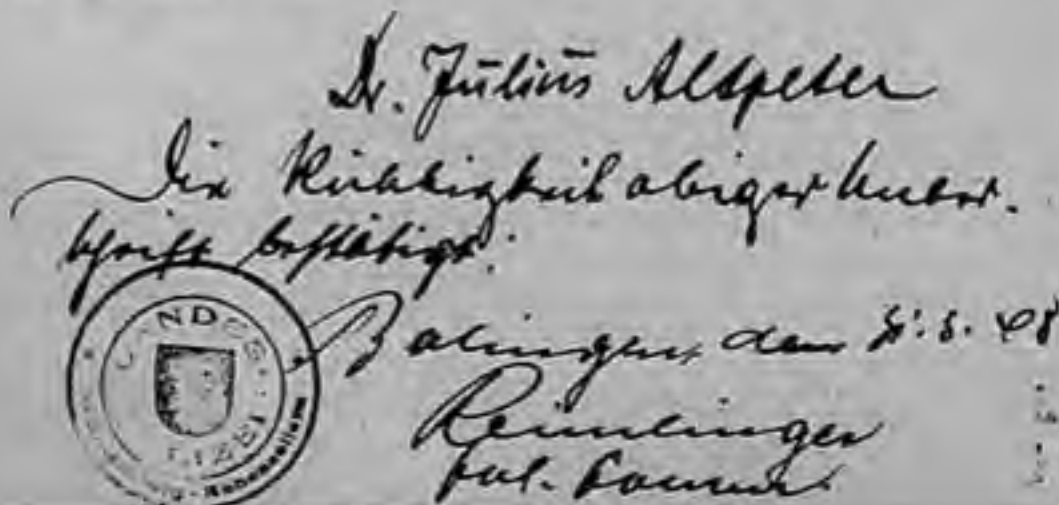 Dr. Julius Altpeter
Die Richtigkeit obiger Unter-
schrift bestätigt:
Balingen, den 8. 48
Reinlinger
Pol. Komm.
LANDESPOLIZEI
Hohenzollern